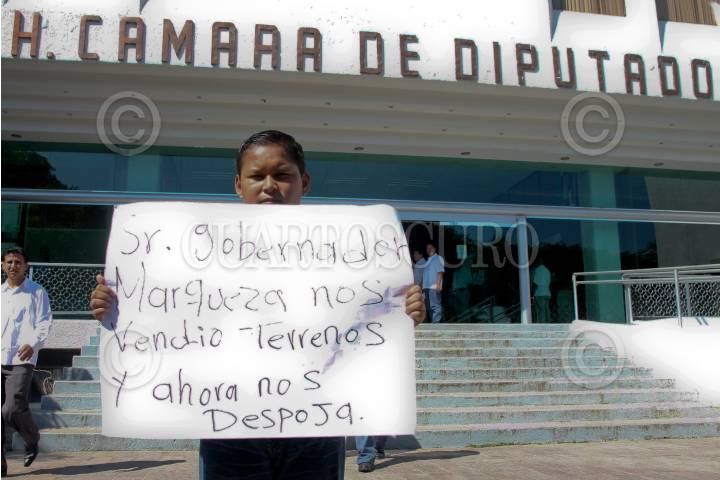 H. CAMARA DE DIPUTADO
Sr. gobernador
Marqueza nos
Vendio Terrenos
Y ahora nos
Despoja.
CUARTOSCURO